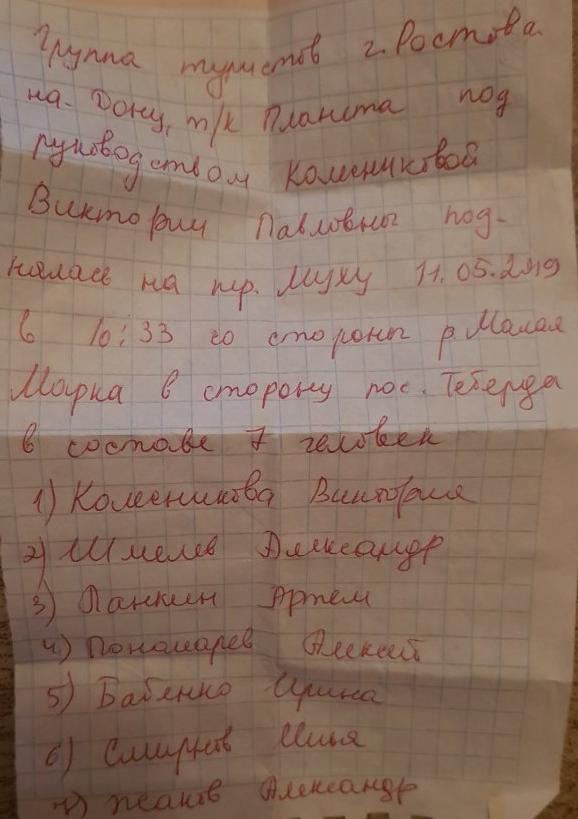 Группа туристов г. Ростова-
на-Дону, т/к Планета под
руководством Колесниковой
Виктории Павловны под-
нялась на пер. Муху 11.05.2019
в 10:33 со стороны р. Малая
Марка в сторону пос. Теберда
в составе 7 человек
1) Колесникова Виктория
2) Шмелев Александр
3) Панкин Артем
4) Пономарев Алексей
5) Бабенко Ирина
6) Смирнов Илья
7) Исаков Александр